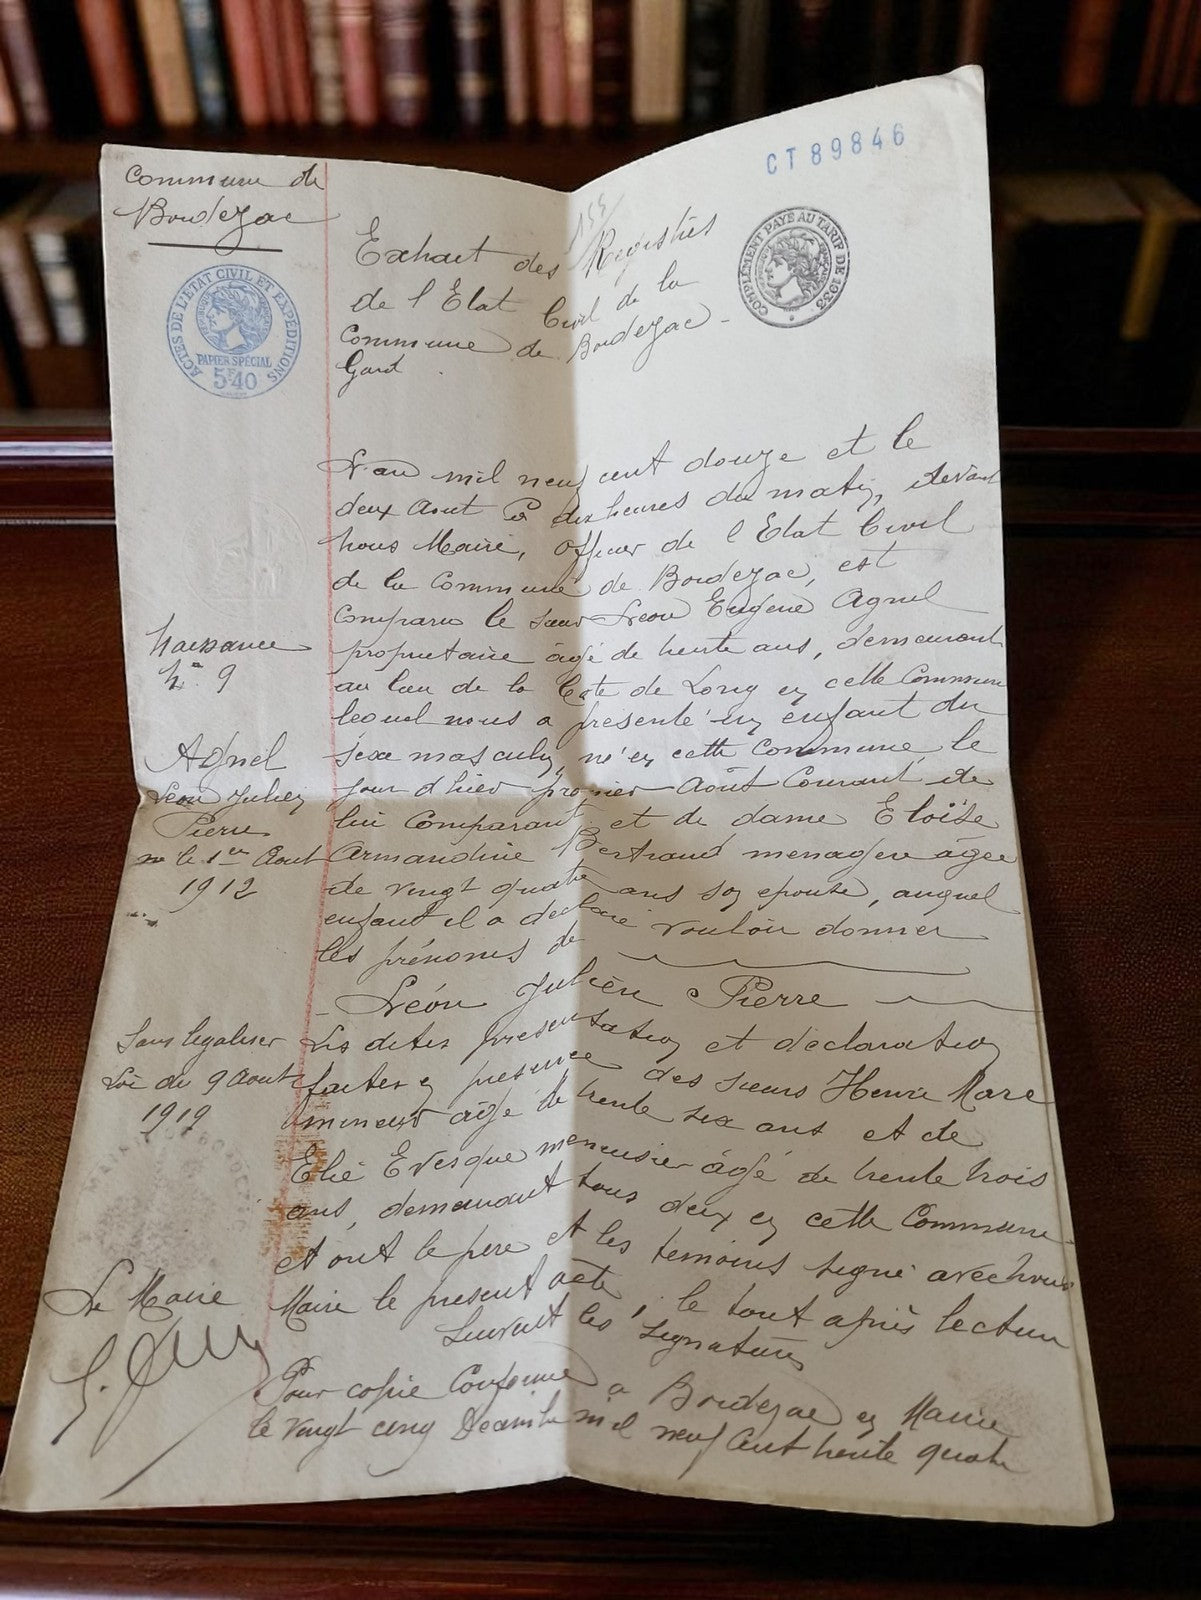 CT 89846
Commune de
Bordezac
ACTES DE L'ÉTAT CIVIL ET EXPÉDITIONS
PAPIER SPÉCIAL
5F40
COMPLÉMENT PAYÉ AU TARIF DE 1933
Extrait des Registres
de l'Etat Civil de la
Commune de Bordezac -
Gard.
L'an mil neuf cent douze et le
deux Aout à dix heures du matin, devant
nous Maire, Officier de l'Etat Civil
de la Commune de Bordezac, est
Comparu le sieur Léon Eugène Agnel
propriétaire âgé de trente ans, demeurant
au lieu de la Cote de Long en cette Commune
lequel nous a présenté un enfant du
sexe masculin, né en cette Commune, le
jour d'hier premier Août Courant, de
lui Comparant et de dame Eloïse
Armandine Bertrand menagère âgée
de vingt quatre ans son epouse, auquel
enfant il a declaré vouloir donner
les prénoms de
- Léon Julien Pierre
Les dites presentation et declaration
faites en presence des sieurs Henri Marc
mineur âgé de trente six ans et de
Elie Evesque menuisier âgé de trente trois
ans, demeurant tous deux en cette Commune.
Et ont le père et les temoins signé avec nous
Maire le present acte, le tout après lecture
Suivent les signatures
Pour copie Conforme a Bordezac en Mairie
le vingt cinq Decembre mil neuf cent trente quatre
Naissance
No 9
Agnel
Léon Julien
Pierre
né le 1er Aout
1912
Sans legaliser
Loi du 9 Aout
1919
Le Maire